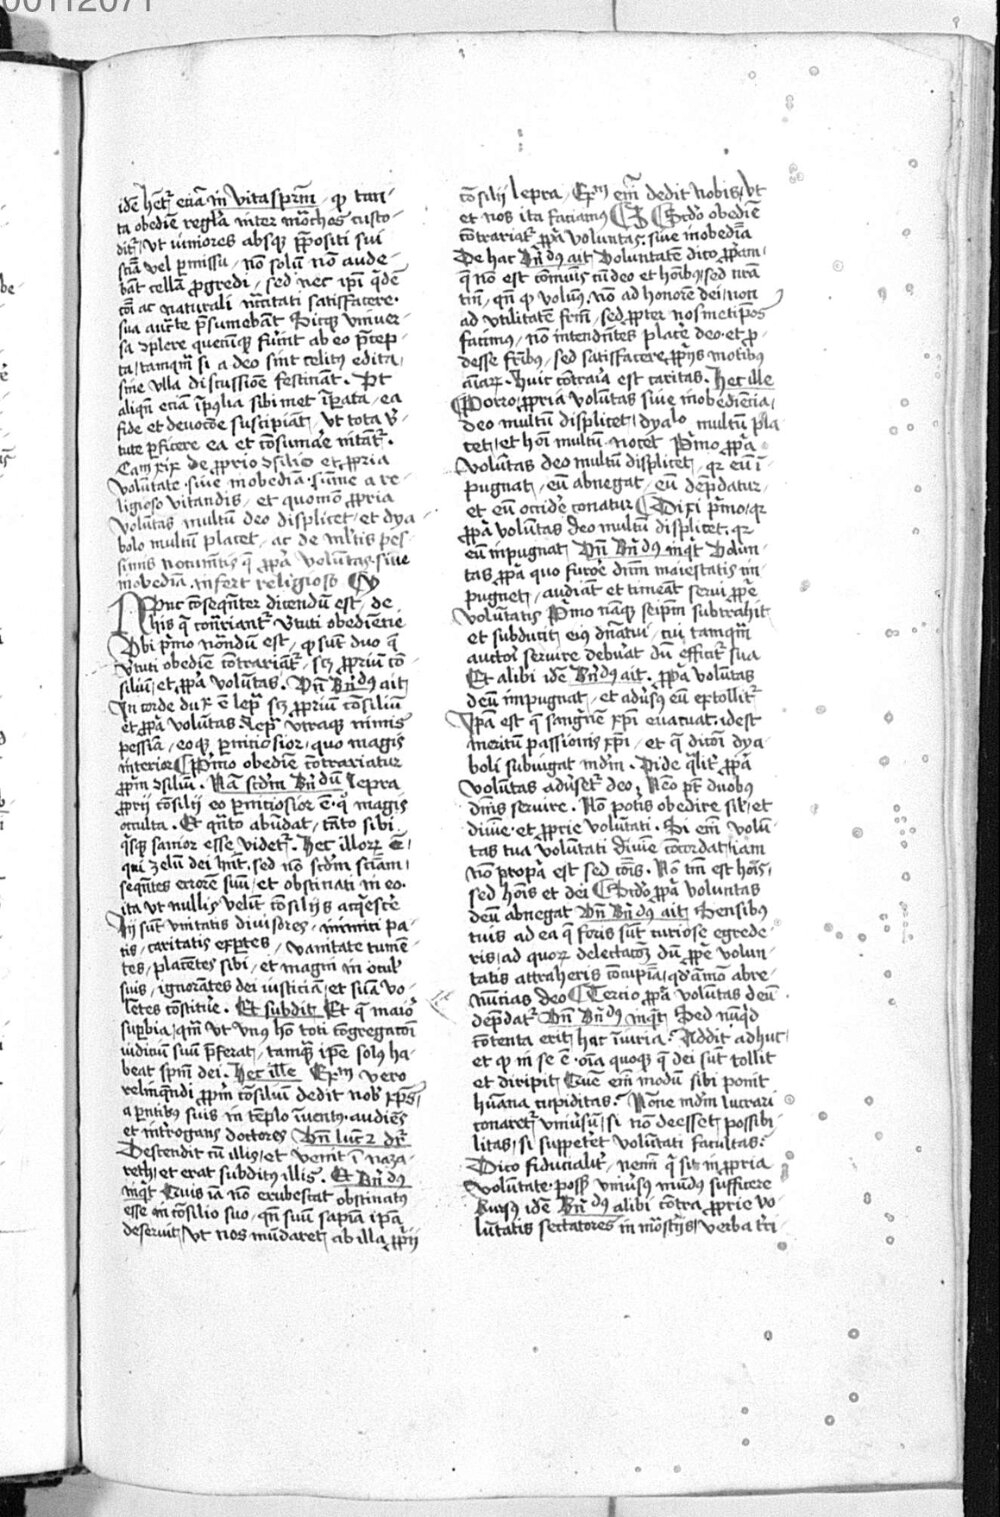 00112071
idē hēt᷑ eciā in vitasp̄rm̄ · ꝙ tan-
ta obediē regl̄a inter mōchos custo-
dit᷑ / vt iuniores absqꝫ p̄positi sui
sciā vel p̄missu / nō solū nō aude-
bāt cellā ꝓgredi / sed nec ip̄i q̄dē
cōi ac naturali nc̄citati satisfacere ·
sua auct̄te p̄sumebāt Sicqꝫ vniuer-
sa ꝯplere quecūqꝫ fuīnt ab eo p̄cep-
ta / tamqm̄ si a deo sint celitus edita /
sine vlla discussiōe festināt · Vt
aliqn̄ eciā īp̄ossibilia sibimet īp̄ata / ea
fide et deuocōe suscipiāt / vt tota v̓-
tute p̄ficere ea et cōsumāe nitāt᷑ ·
Cam xix de ꝓprio ꝯsilio et ꝓpria
volūtate · siue inobediā · sūme a re-
ligioso vitandis / et quomō ꝓpria
volūtas multū deo displicet / et dya-
bolo multū placet / ac de ml̓tis pes-
simis nocumētis q̄ ꝓp̄a volūtas · siue
inobediā · infert religioso
Nunc cōseqn̄ter dicendū est / de
his q̄ cont̄riant᷑ v̓tuti obediencie
Vbi p̄mo notandū est / ꝙ sūt duo q̄
v̓tuti obediē cōtrariāt᷑ / scꝫ ꝓpriū cō-
siliū / et ꝓp̄a volūtas · Vn̄ Bn̄dus ait
In corde dux ē lep̄ scꝫ ꝓpriū cōsiliū
et ꝓp̄a volūtas Lep̄ vtraqꝫ nimis
pessiā / eoqꝫ p̄niciosior / quo magis
interior Primo obediē cōtrariatur
ꝓpm̄ ꝯsiliū · Nā scdm̄ Bn̄dū lepra
ꝓprii cōsilii eo p̄niciosior ē · qͦ magis
occulta · Et qn̄to abūdat / tāto sibi
q̄sqꝫ sanior esse videt᷑ · Hec illorꝝ ē
qui zelū dei hn̄t · sed nō scdm̄ sciam̄ /
seqn̄tes errorē suū / et obstinati in eo ·
ita vt nullis velīt cōsiliis acq̄escere
Hij sūt vnitatis diuisores / inimici pa-
cis / caritatis exp̄tes / vanitate tumē-
tes / placētes sibi / et magni in ocul̓
suis / ignorātes dei iusticiā / et suā vo-
lētes cōstitue̓ · Et subdit Et q̄ maior̓
sup̄bia / qm̄ vt vnus hō toti cōgregacōi
iudiciū suū p̄ferat / tamqꝫ ip̄e solus ha-
beat sp̄m dei · Hec ille Exm̄ vero
relinqn̄di ꝓpm̄ cōsiliū dedit nob̓ xp̄s /
a p̄ntibus suis in tēplo īuentus · audiēs
et int̄rogans doctores Vn̄ luc 2 dr̄
Descendit cū illis / et venit ī naza-
reth / et erat subditus illis · Et Bn̄dus
inqt̄ Quis iā nō erubescat obstinatus
esse in cōsilio suo / qn̄ suū sap̄iā ip̄a
deseruit / vt nos mūdaret / ab illa ꝓprii
cōsilii lepra / Exm̄ em̄ dedit nobis / vt
et nos ita faciamus Scdo obediē
cōtrariat᷑ ꝓp̄a voluntas · siue inobediā
De hac Bn̄dus ait Voluntatē dico ꝓp̄am ·
q̄ nō est com̄unis cū deo et hoībus / sed nr̄a
tm̄ / qn̄ ꝙ volum᷒ nō ad honorē dei / non
ad vtilitatē frm̄ / sed ꝓpter nosmetip̄os
facimus / nō intendn̄tes placē deo · et ꝓ-
desse fr̄ibus / sed satisfacere ꝓpriis motibus
aīarꝝ · Huic cōtraria est caritas · Hec ille
Porro / ꝓpria volūtas siue inobediēcia /
deo multū displicet / dyalo multū pla
cet / et hoī multū nocet Primo ꝓp̄a
volūtas deo multū displicet / qr eū ī-
pugnat / eū abnegat / eū dep̄datur /
et eū occide̓ conatur Dixi p̄mo / qr
ꝓp̄a volūtas deo multū displicet · qr
eū inpugnat Vn̄ Bn̄dus inqt̄ Volun-
tas ꝓp̄a quo furōe dn̄m maiestatis in-
pugnet / audiāt et timeāt serui ꝓp̄e
volūtatis Primo nāqꝫ seip̄m subtrahit
et subducit eius dn̄atui / cui tamqm̄
auctori seruire debuāt dū efficit᷑ sua
Et alibi idē Bn̄dus ait · Ꝓp̄a volūtas
deū impugnat / et adūsus eū extollit᷑
Ip̄a est q̄ sangnē xp̄i euacuat · idest
meritū passionis xp̄i / et q̄ dicōi dya-
boli subiugat mdm̄ · Vide q̄lit̓ ꝓp̄a
voluntas adūset᷑ deo Nēo pt̄ duobus
dn̄is seruire · Nō potis obedire sil̓ / et
diuīe · et ꝓprie volūtati · Si em̄ volū-
tas tua volūtati diuīe cōcordat / iam
nō propa est sed cōis · Nō tm̄ est hoīs /
sed hoīs et dei Scdo ꝓp̄a voluntas
deū abnegat Vn̄ Bn̄dus ait Sensibus
tuis ad ea q̄ foris sūt curiose egrede-
ris / ad quorꝝ delectacōꝫ dū ꝓp̄e volun-
tatis attraheris cōcupīa / qd̓āmō abre-
nūcias deo Tercio ꝓp̄a volūtas deū
dep̄dat᷑ Vn̄ Bn̄dus inqt̄ Sed nūqd
cōtenta erit hac iniuria · Addit adhuc /
et ꝙ in se ē · oīa quoqꝫ q̄ dei sūt tollit
et diripit Quē em̄ modū sibi ponit
hūana cupiditas · Nōne mdm̄ lucrari
conaret᷑ vniūsū / si nō deesset possibi-
litas / si suppet̄et volūtati facultas ·
Dico fiducialit᷑ / nemī q̄ sit in ꝓpria
volūtate · posse vniūsus mūdus sufficere
Rursus idē Bn̄dus alibi cōtra ꝓprie vo-
lūtatis sectatores in mōstiis / verba t̄ri-